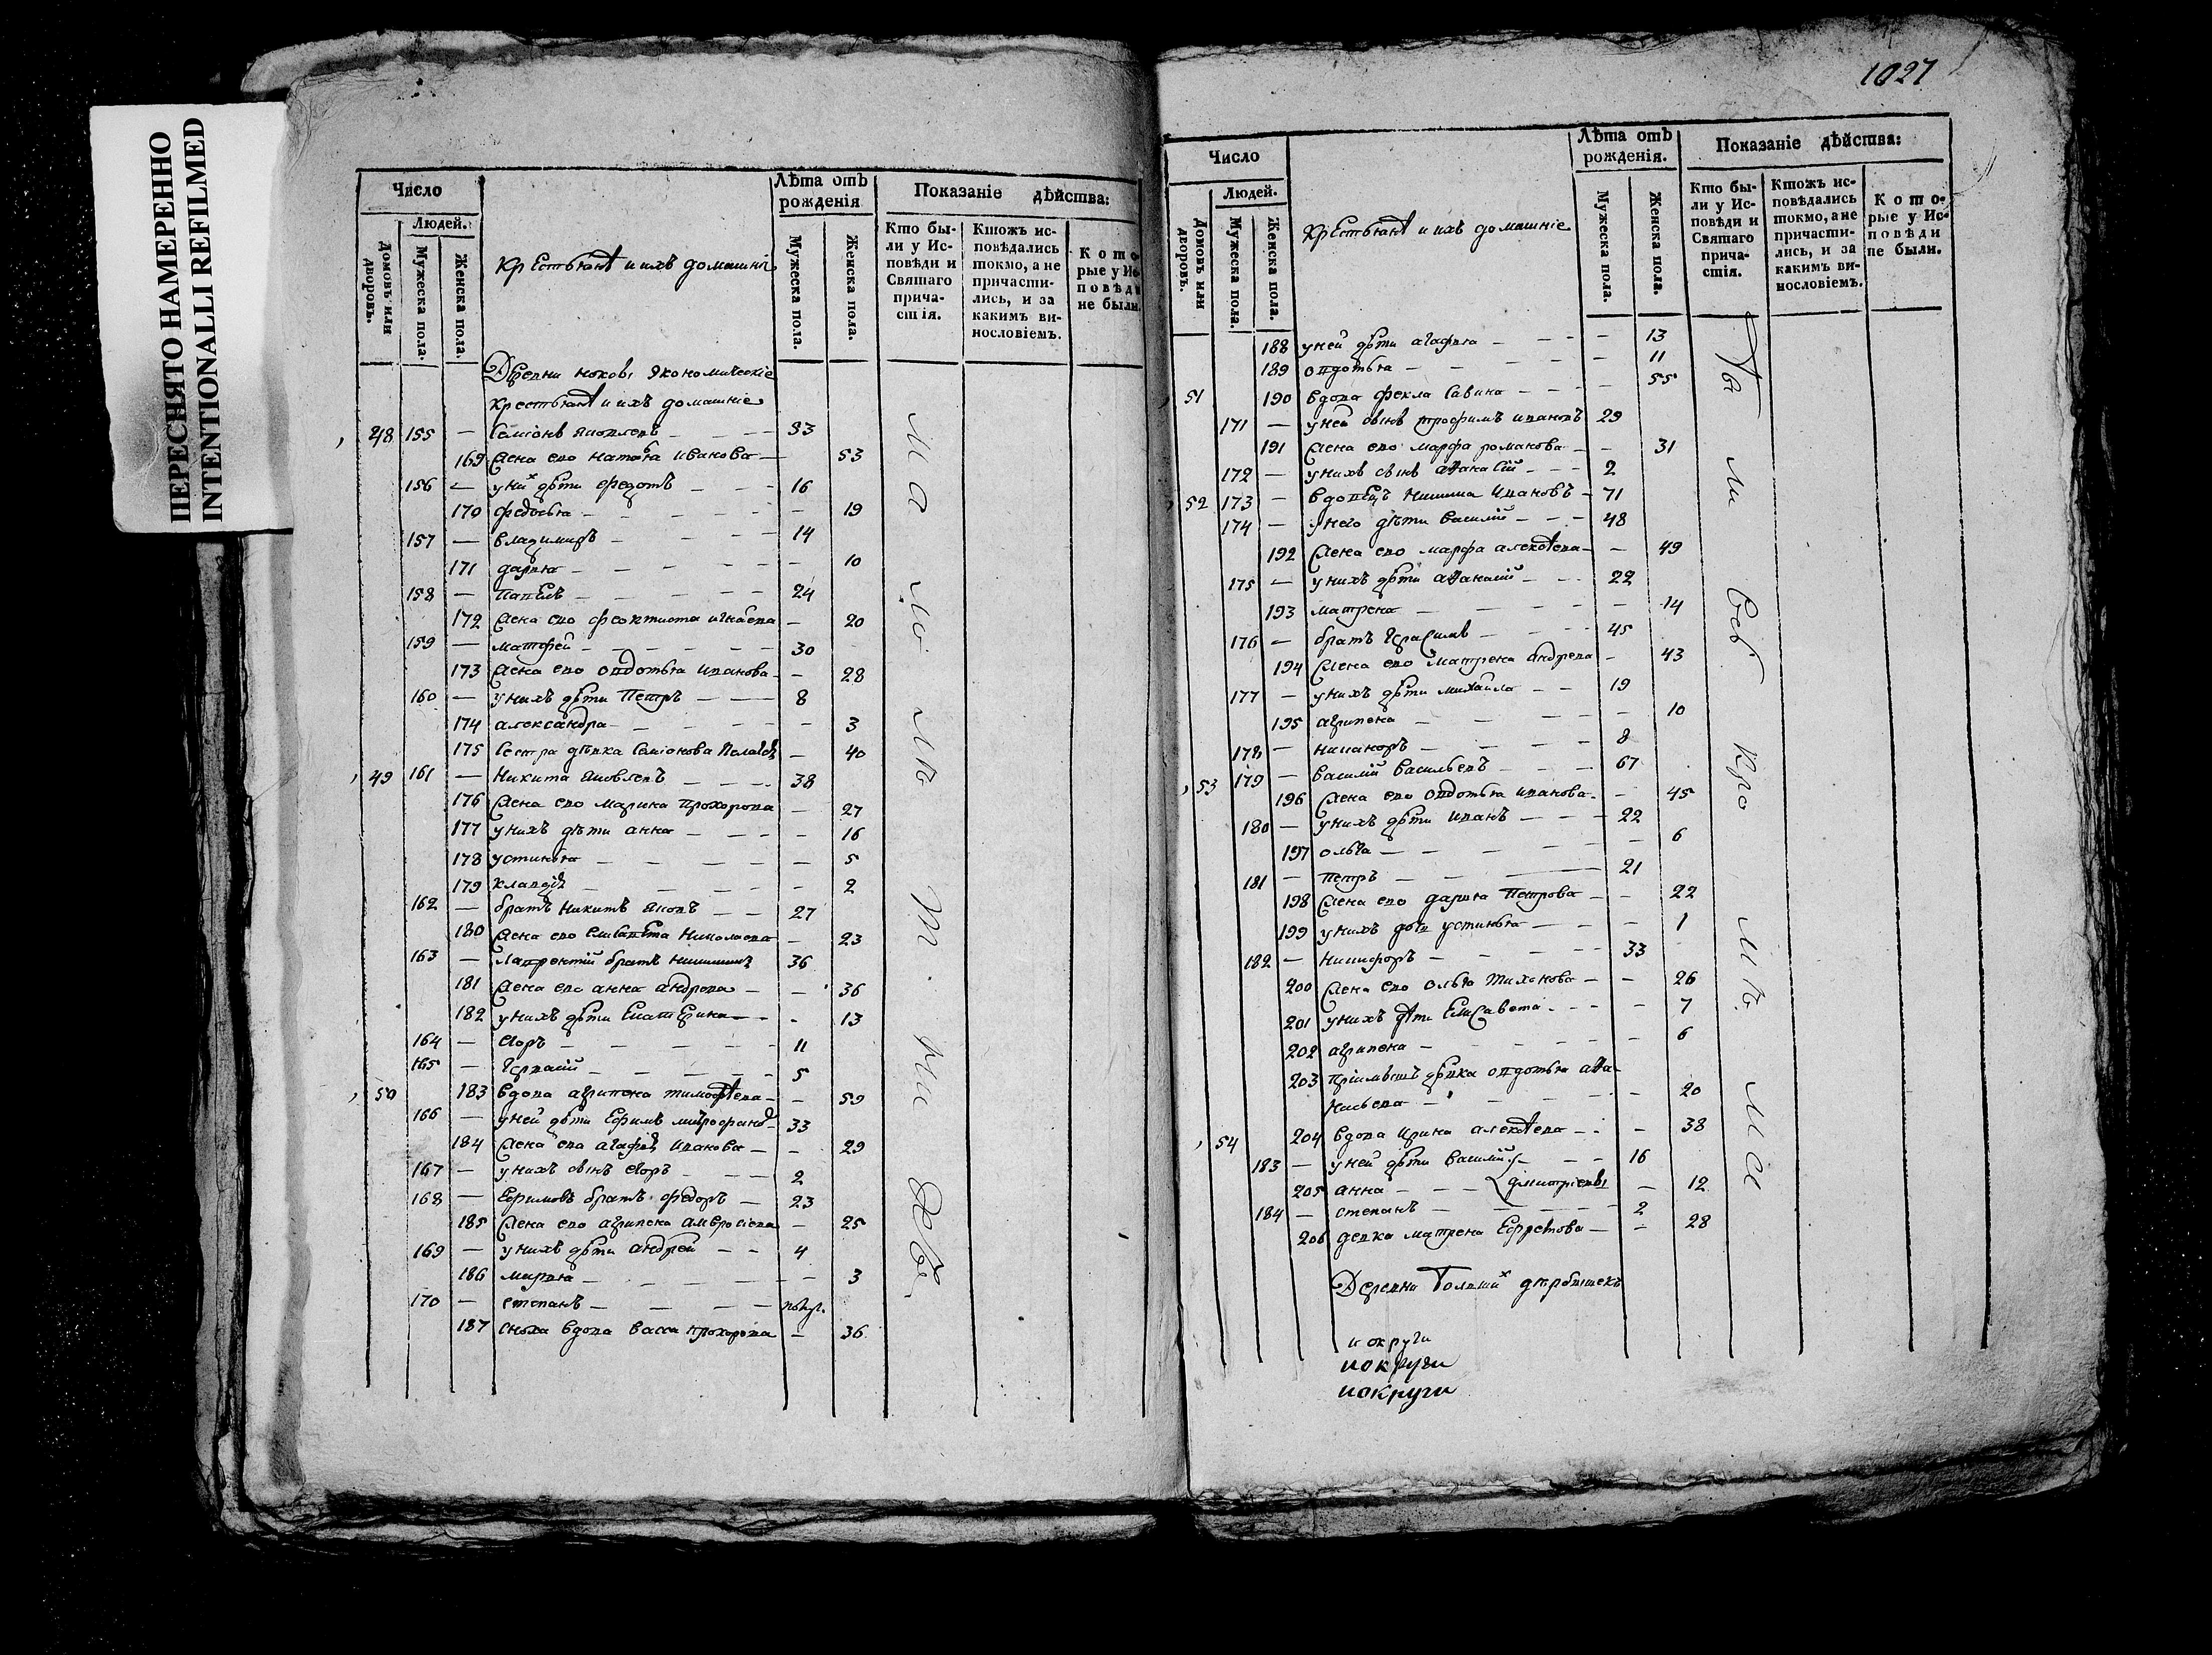 ПЕРЕСНЯТО НАМЕРЕННО
INTENTIONALLI REFILMED
Число
Людей.
Домовъ или дворовъ.
Мужеска пола.
Женска пола.
Крестьянѣ и ихъ домашніе
Лѣта отъ рожденія
Мужеска пола.
Женска пола.
Показаніе дѣйства:
Кто были у Исповѣди и Святаго причастія.
Ктожъ исповѣдались токмо, а не причастились, и за какимъ винословіемъ.
Которые у Исповѣди не были.
Деревни экономическіе
крестьянѣ и ихъ домашніе
48 155 — Семіонъ Яковлевъ — 93
169 жена его Иванова — 53
156 — у них дѣти Федотъ — 16
170 Федосья — 19
157 — Владимиръ — 14
171 Дарья — 10
158 — Павелъ — 24
172 жена его Феоктиста Игнаева — 20
159 — Матфей — 30
173 жена его Овдотья Иванова — 28
160 — у нихъ дѣти Петръ — 8
174 Александра — 3
175 Сестра дѣвка Семіонова — 40
49 161 — Никита Яковлевъ — 38
176 жена его Марина Прохорова — 27
177 у нихъ дѣти Анна — 16
178 Устинья — 5
179 Клавдія — 2
162 — братъ Никитѣ Яковъ — 27
180 жена его Елисавета Николаева — 23
163 — Лаврентій братъ — 36
181 жена его Анна Андрева — 36
182 у нихъ дѣти Екатерина — 13
164 — Егоръ — 11
165 — — 5
50 183 вдова Агрипена Тимофѣева — 59
166 — у ней дѣти Ефимъ — 33
184 жена его Агафія Иванова — 29
167 — у нихъ сынъ Егоръ — 2
168 — Ефимовъ братъ Федоръ — 23
185 жена его Агрипена Амвросіева — 25
169 — у нихъ дѣти Андрей — 4
186 Марья — 3
170 — Степанъ — полуг.
187 Сноха вдова Васса Прохорова — 36
1027
Число
Людей.
Домовъ или дворовъ.
Мужеска пола.
Женска пола.
Крестьянѣ и ихъ домашніе
Лѣта отъ рожденія.
Мужеска пола.
Женска пола.
Показаніе дѣйства:
Кто были у Исповѣди и Святаго причастія.
Ктожъ исповѣдались токмо, а не причастились, и за какимъ винословіемъ.
Которые у Исповѣди не были.
188 у ней дѣти Агафья — 13
189 Овдотья — 11
51 190 вдова Фекла Савина — 55
171 — у ней сынъ Трофимъ Ивановъ 29
191 жена его Марфа Романова — 31
172 — у нихъ сынъ Аѳанасій — 2
52 173 — вдовецъ Никита Ивановъ — 71
174 — у него дѣти Василій — 48
192 жена его Марфа Алексѣева — 49
175 — у нихъ дѣти Аѳанасій — 22
193 Матрена — 14
176 — братъ Герасимъ — 45
194 жена его Матрена Андрева — 43
177 — у нихъ дѣти Михайла — 19
195 Агрипена — 10
178 — Никаноръ — 8
53 179 — Василій Васильевъ — 67
196 жена его Овдотья Иванова — 45
180 — у нихъ дѣти Иванъ — 22
197 Ольга — 6
181 — Петръ — 21
198 жена его Дарья Петрова — 22
199 у нихъ дочь Устинья — 1
182 — Никифоръ — 33
200 жена его Ольга Тихонова — 26
201 у нихъ дѣти Елисавета — 7
202 Агрипена — 6
203 дѣвка Овдотья Аѳа-
насьева — 20
54 204 вдова Ирина Алексѣева — 38
183 — у ней дѣти Василій — 16
205 Анна — Дмитріевы — 12
184 — Степанъ — 2
206 девка Матрена Ефремова — 28
Деревни
и округи
и округи
и округи